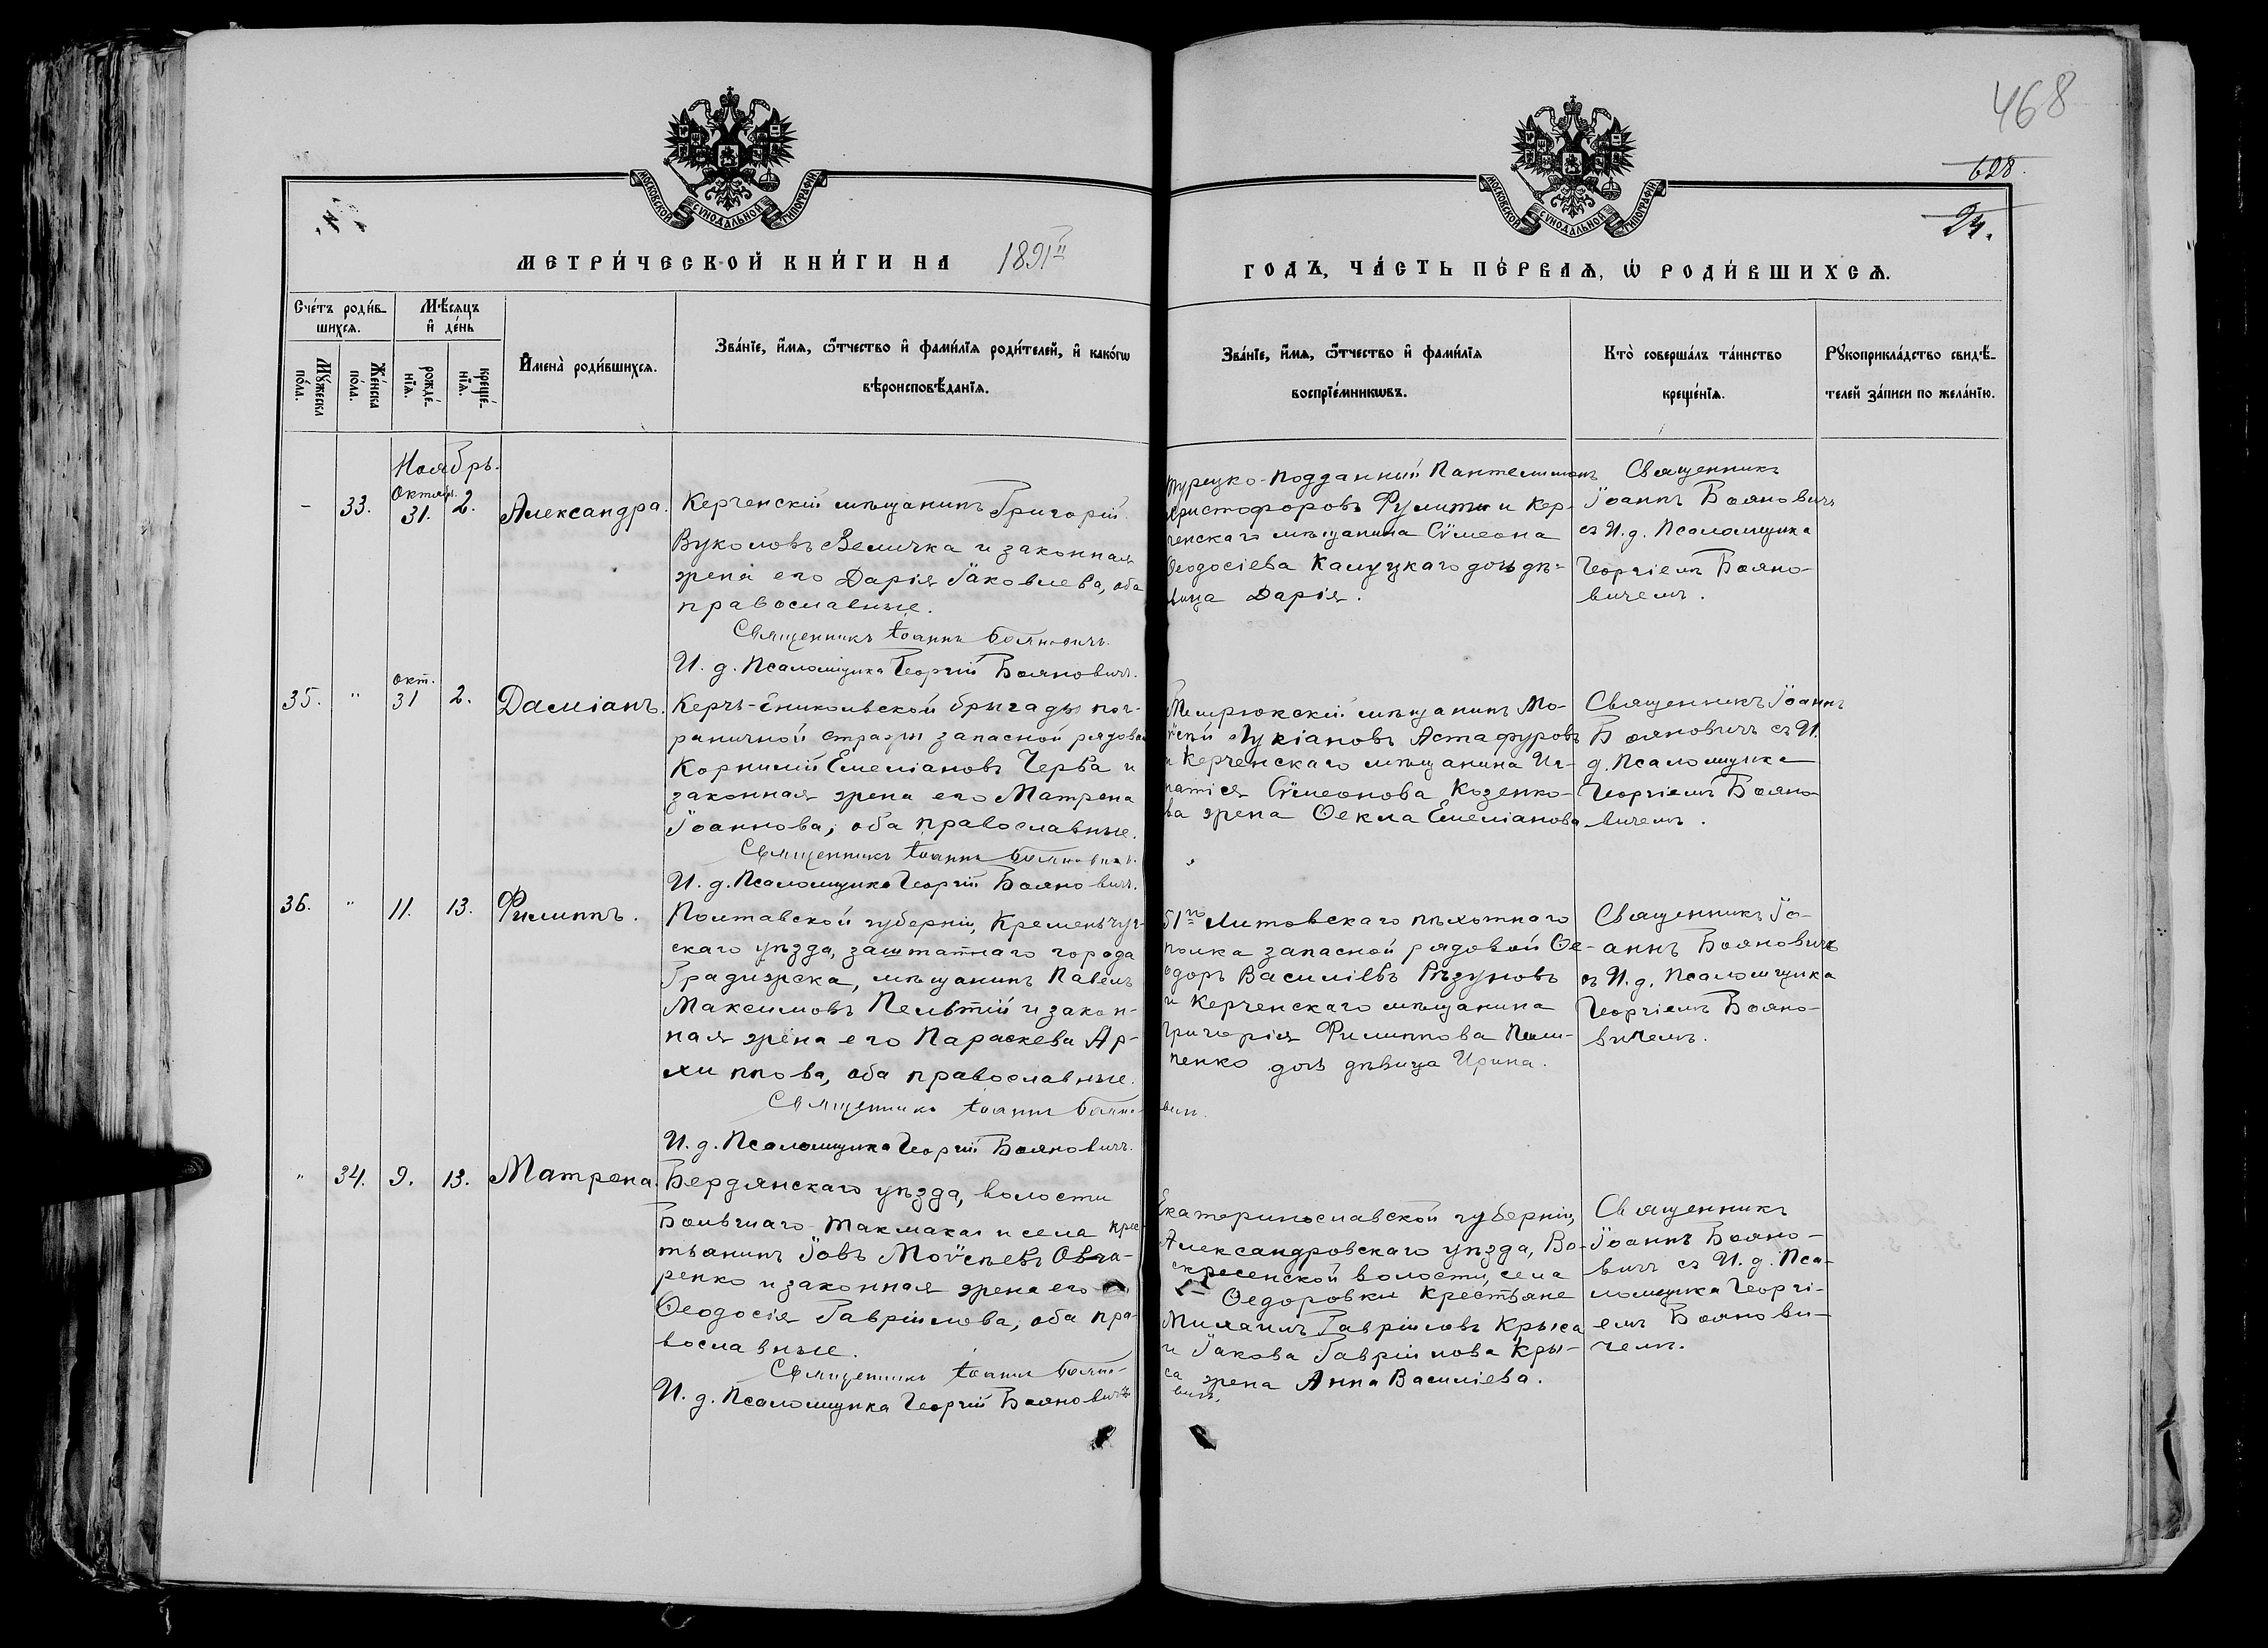 468
628.
24.
МОСКОВСКОЙ СѴНОДАЛЬНОЙ ТИПОГРАФІИ
МОСКОВСКОЙ СѴНОДАЛЬНОЙ ТИПОГРАФІИ
МЕТРИ́ЧЕСКОЙ КНИ́ГИ НА 1891й
ГОДЪ, ЧА́СТЬ ПЕ́РВАѦ, Ѡ҆ РОДИ́ВШИХСѦ.
Сче́тъ роди́в-
шихсѧ.
Мѣ́сѧцъ
и҆ де́нь
Мꙋ́жеска
по́ла.
Же́нска
по́ла.
рожде́-
нїѧ.
креще́-
нїѧ.
И҆мена̀ роди́вшихсѧ.
Зва́нїе, и҆́мѧ, ѻ҆́тчество и҆ фами́лїѧ роди́телей, и҆ како́гѡ
вѣроисповѣ́данїѧ.
Зва́нїе, и҆́мѧ, ѻ҆́тчество и҆ фами́лїѧ
воспрїе́мникѡвъ.
Кто̀ соверша́лъ та́инство
креще́нїѧ.
Рꙋкоприкла́дство свидѣ́-
телей за́писи по жела́нїю.
Ноябрь.
- 33. Октяб. 31. 2. Александра.
Керченскій мѣщанинъ Григорій
Вуколовъ Величка и законная
жена его Дарія Іаковлева, оба
православные.
Священникъ Іоаннъ Бояновичъ.
И. д. Псаломщика Георгій Бояновичъ.
Турецко-подданный Пантелимонъ
Христофоровъ Румити и Кер-
ченскаго мѣщанина Сѵмеона
Ѳеодосіева Калуцкаго дочь дѣ-
вица Дарія.
Священникъ
Іоаннъ Бояновичъ
съ И. д. Псаломщика
Георгіемъ Бояно-
вичемъ.
35. " окт. 31 2. Даміанъ.
Керчь-Еникольской бригады пог-
раничной стражи запасной рядовой
Корнилій Емеліановъ Черва и
законная жена его Матрена
Іоаннова, оба православные.
Священникъ Іоаннъ Бояновичъ.
И. д. Псаломщика Георгій Бояновичъ.
Темрюкскій мѣщанинъ Мо-
ѵсей Лукіановъ Астафуровъ
и Керченскаго мѣщанина Иг-
натія Сѵмеонова Козенко-
ва жена Ѳекла Емеліанова
Священникъ Іоаннъ
Бояновичъ съ И.
д. Псаломщика
Георгіемъ Бояно-
вичемъ.
36. " 11. 13. Филиппъ.
Полтавской губерніи, Кременчуг-
скаго уѣзда, заштатнаго города
Градижска, мѣщанинъ Павелъ
Максимовъ Пелѣтій и закон-
ная жена его Параскева Ар-
хиппова, оба православные.
Священникъ Іоаннъ Бояно-
вичъ.
И. д. Псаломщика Георгій Бояновичъ.
51го Литовскаго пѣхотнаго
полка запасной рядовой Ѳе-
одоръ Василіевъ Рѣзуновъ
и Керченскаго мѣщанина
Григорія Филиппова Пили-
пенко дочь дѣвица Ирина.
Священникъ Іо-
аннъ Бояновичъ
съ И. д. Псаломщика
Георгіемъ Бояно-
вичемъ.
" 34. 9. 13. Матрена.
Бердянскаго уѣзда, волости
Большаго-Токмака и села крес-
тьянинъ Іовъ Моѵсеевъ Овча-
ренко и законная жена его
Ѳеодосія Гавріилова, оба пра-
вославные.
Священникъ Іоаннъ Бояно-
вичъ.
И. д. Псаломщика Георгій Бояновичъ
Екатеринославской губерніи,
Александровскаго уѣзда, Во-
скресенской волости, села
Ѳедоровки крестьяне
Михаилъ Гавріиловъ Крыса
и Іакова Гавріилова Кры-
са жена Анна Василіева.
Священникъ
Іоаннъ Бояно-
вичъ съ И. д. Пса-
ломщика Георгі-
емъ Боянови-
чемъ.